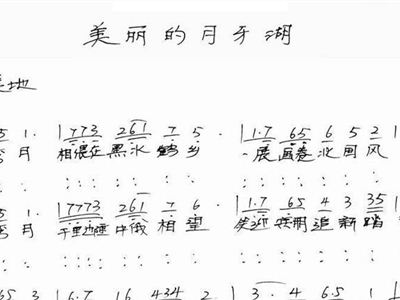 美丽的月牙湖
地
5 1. | 7773 261 7 5. | 1.7 65 6 5 2 |
月 相偎在黑水鹤乡 一展画卷北国风
5 1. | 7773 261 7 6 | 1.7 65 4 3 35
月 千里边陲中俄相望 笑迎 追新踏
65 3 | 6.7 16 434 2 | 3. 4 65 1